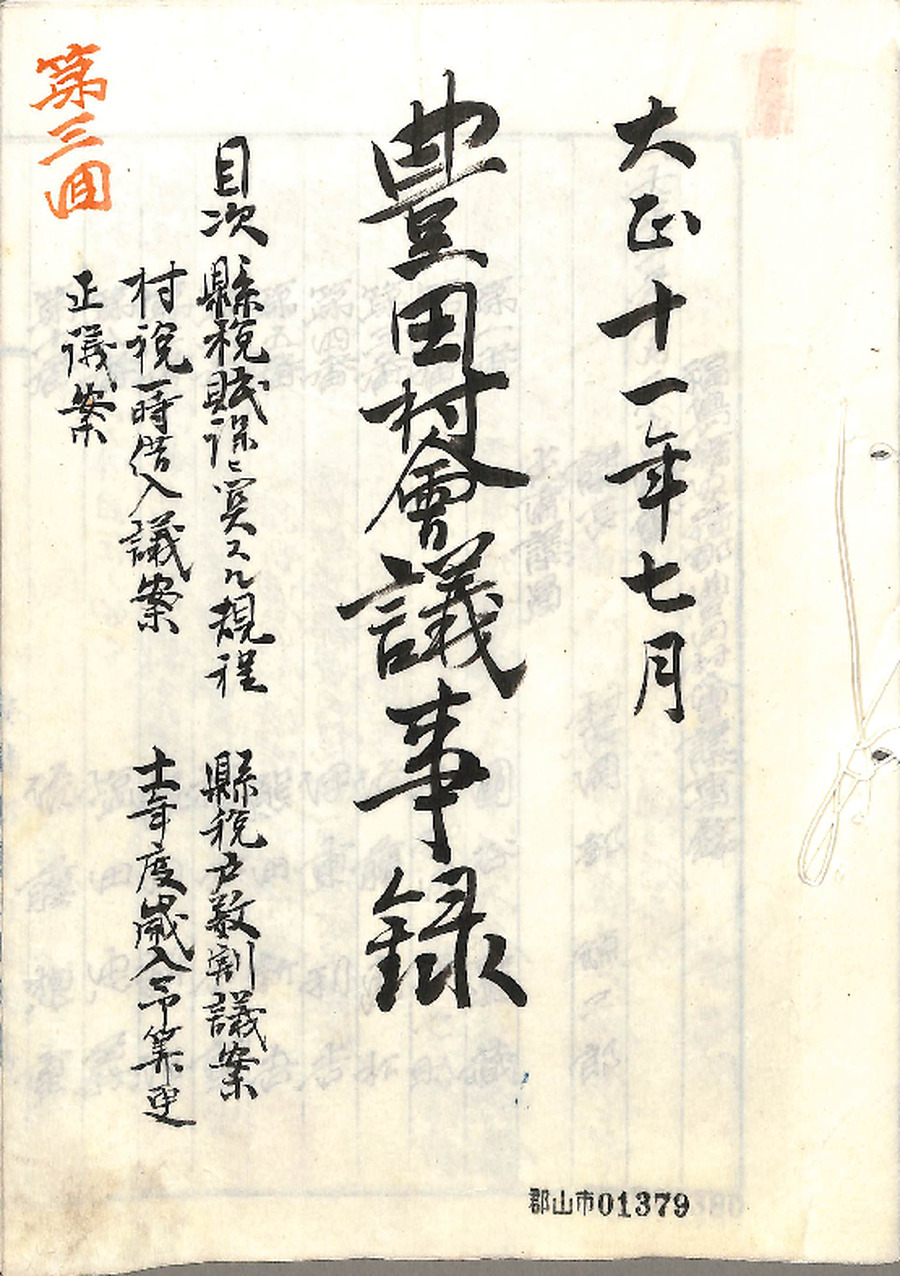 大正十一年七月
豊田村會議事録
目次 縣税賦課ニ関スル規程 縣税戸数割議案
村税一時借入議案 十一年度歳入予算更
正議案
第三回
郡山市01379